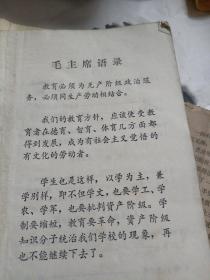 毛主席语录
教育必须为无产阶级政治服
务，必须同生产劳动相结合。
我们的教育方针，应该使受教
育者在德育、智育、体育几方面都
得到发展，成为有社会主义觉悟的
有文化的劳动者。
学生也是这样，以学为主，兼
学别样，即不但学文，也要学工、学
农、学军，也要批判资产阶级。学
制要缩短，教育要革命，资产阶级
知识分子统治我们学校的现象，再
也不能继续下去了。